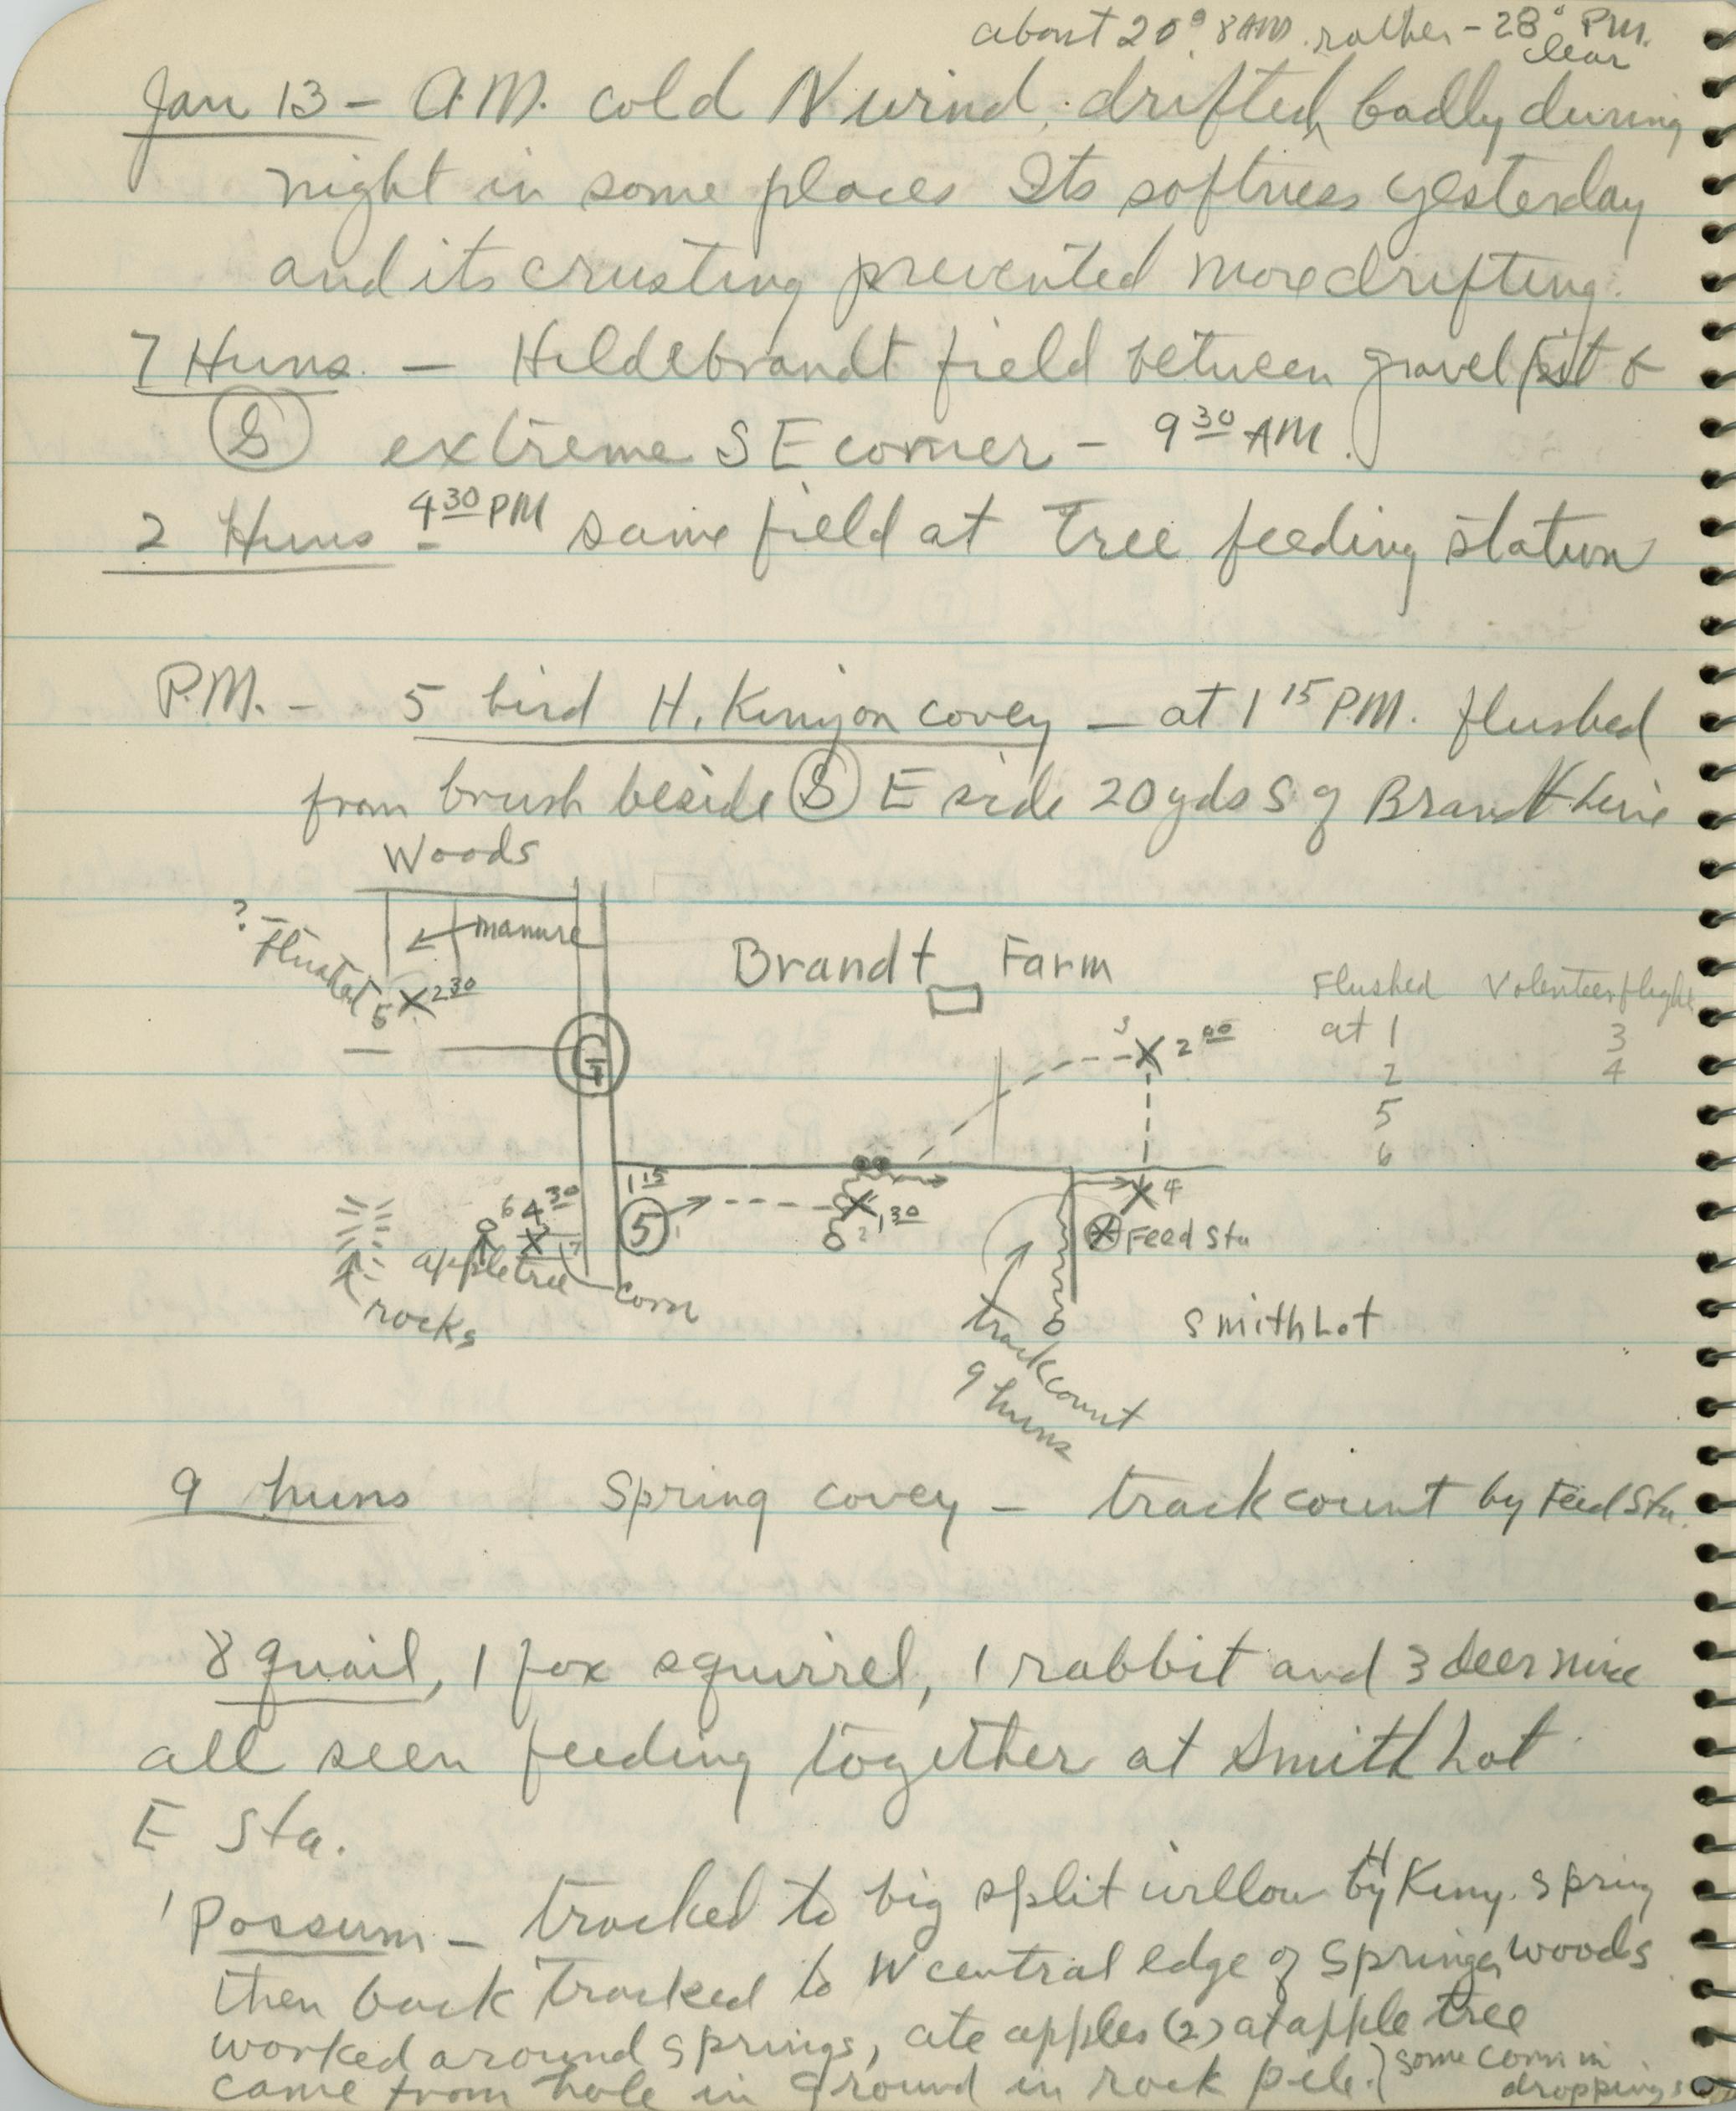 about 20° 8 AM. rather - 28° PM.
clear
Jan 13 - A.M. cold N wind, drifted badly during
night in some places Its softness yesterday
and its crusting prevented more drifting.
7 Huns. - Hildebrandt field between gravel pit &
S extreme SE corner - 9 30 AM.
2 Huns - 4 30 PM same field at Tree feeding station
P.M. - 5 bird H. Kinyon covey - at 1 15 PM. flushed
from brush beside S E side 20 yds S of Brandt line
Woods
manure
? Flushed
5 X 2 30
Brandt Farm
Flushed Volenteer flight
at 1 3
2 4
5
6
3 X 2 00
G
1 15
5 1
X 1 30
2
X 4
X Feed Sta
6 4 30
X
apple tree
corn
rocks
track count
9 huns
Smith Lot
9 huns Spring covey - track count by Feed Sta.
8 quail, 1 fox squirrel, 1 rabbit and 3 deer mice
all seen feeding together at Smith Lot
E Sta.
1 Possum - tracked to big split willow by H Kiny. spring
then back tracked to W central edge of Springs woods
worked around springs, ate apples (2) at apple tree
came from hole in ground in rock pile.) some corn in
droppings